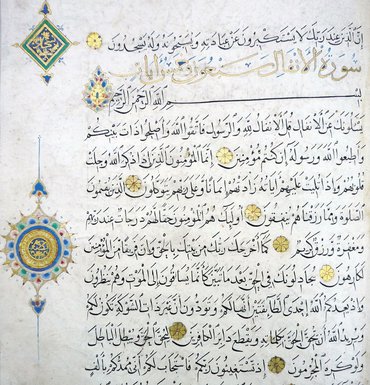 إن الذين عند ربك لا يستكبرون عن عبادته ويسبحونه وله يسجدون
سورة الأنفال سبعون آيات
بسم الله الرحمن الرحيم
يسئلونك عن الأنفال قل الأنفال لله والرسول فاتقوا الله وأصلحوا ذات بينكم
وأطيعوا الله ورسوله إن كنتم مؤمنين إنما المؤمنون الذين إذا ذكر الله وجلت
قلوبهم وإذا تليت عليهم آياته زادتهم إيمانا وعلى ربهم يتوكلون الذين يقيمون
الصلوة ومما رزقناهم ينفقون أولئك هم المؤمنون حقا لهم درجات عند ربهم
ومغفرة ورزق كريم كما أخرجك ربك من بيتك بالحق وإن فريقا من المؤمنين
لكارهون يجادلونك في الحق بعد ما تبين كأنما يساقون إلى الموت وهم ينظرون
وإذ يعدكم الله إحدى الطائفتين أنها لكم وتودون أن غير ذات الشوكة تكون لكم
ويريد الله أن يحق الحق بكلماته ويقطع دابر الكافرين ليحق الحق ويبطل الباطل
ولو كره المجرمون إذ تستغيثون ربكم فاستجاب لكم أني ممدكم بألف